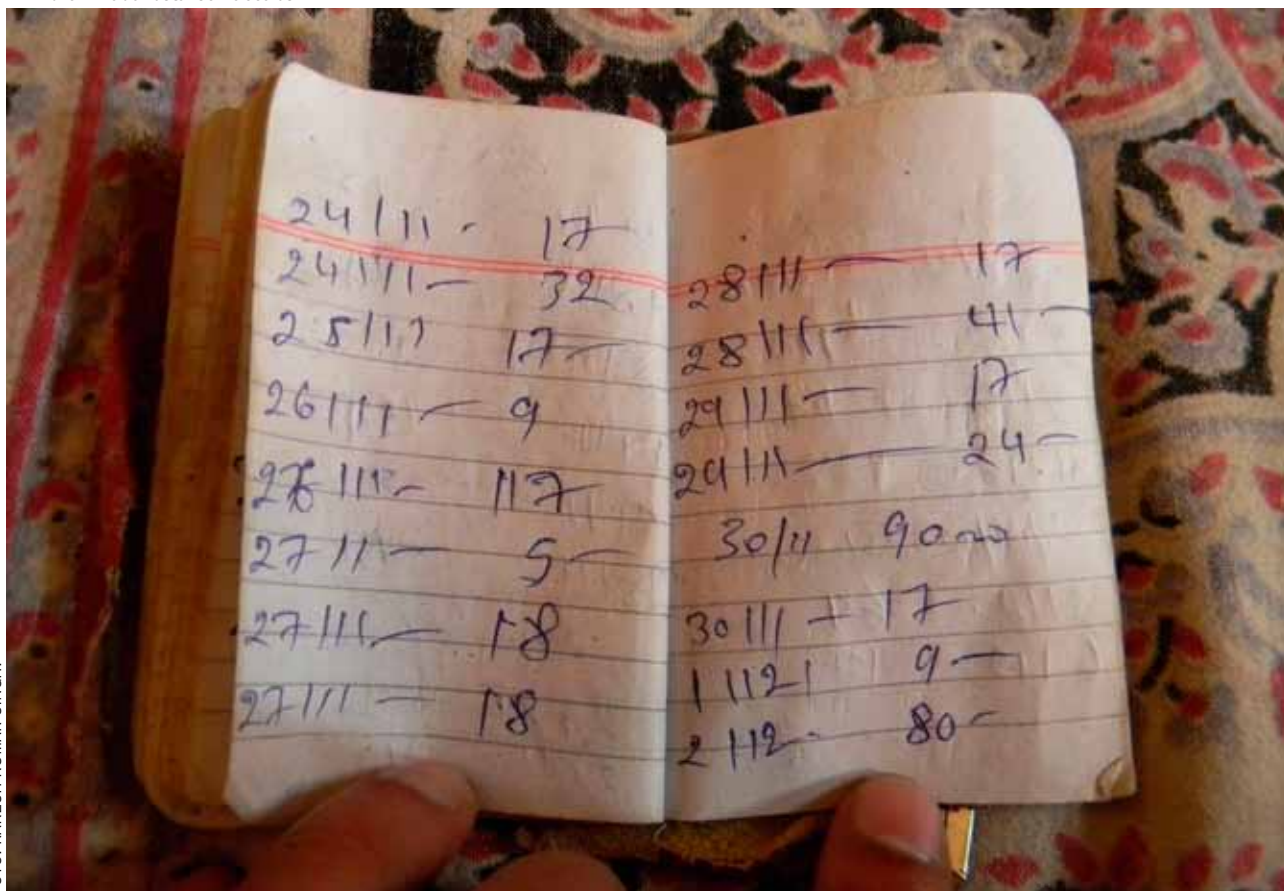 24/11 - 17
24/11 - 32
25/11 17 -
26/11 - 9
26/11 - 17
27/11 - 5 -
27/11 - 18
27/11 - 18
28/11 - 17
28/11 - 41 -
29/11 - 17
29/11 - 24 -
30/11 90
30/11 - 17
1/12/ 9 -
2/12 - 80 -